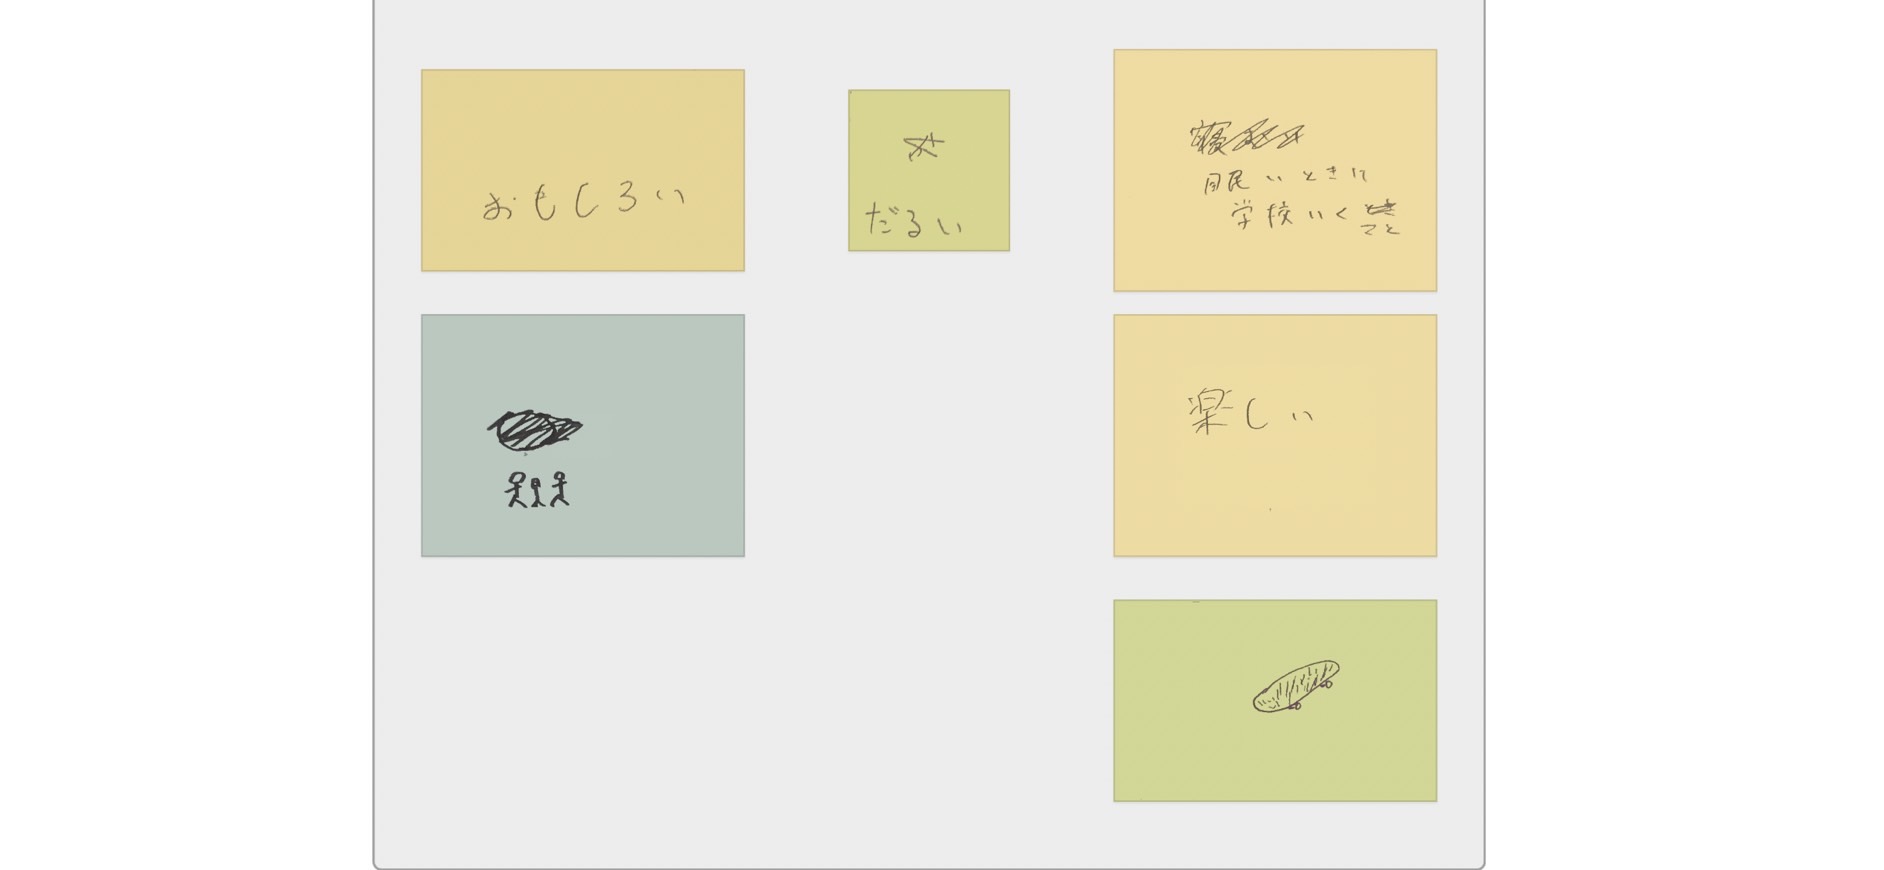 おもしろい
だるい
眠いときに
学校いく
こと
楽しい